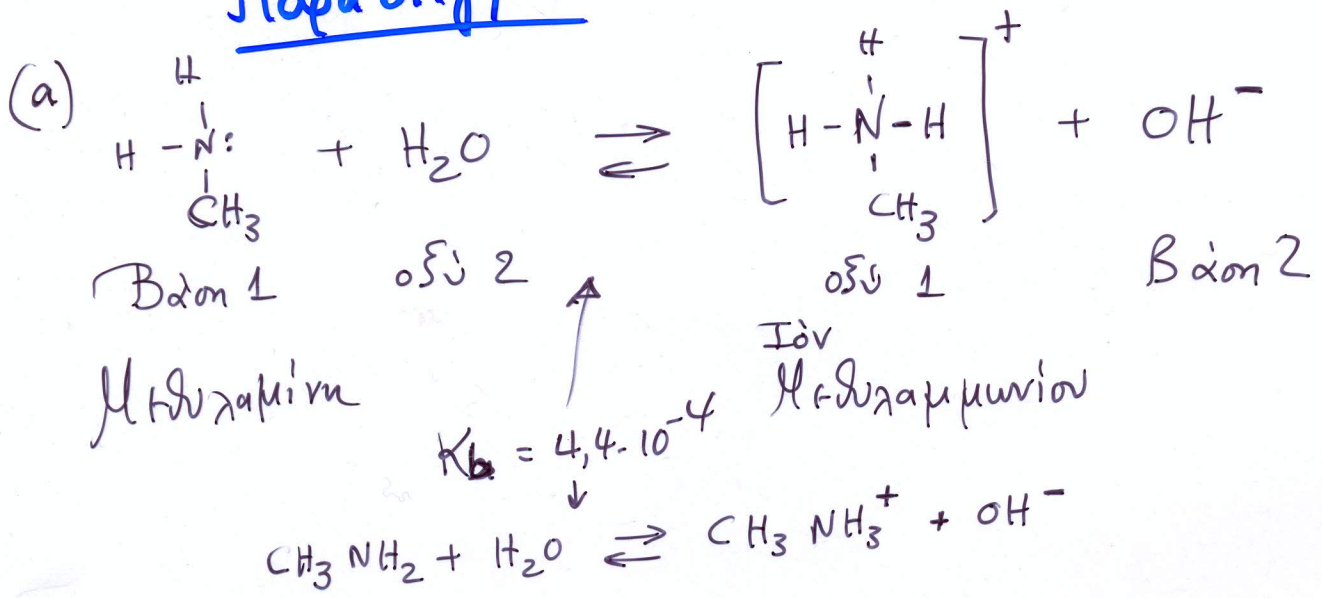 (α)
H
H – N: + H₂O ⇌ [H – N – H]⁺ + OH⁻
CH₃
H
CH₃
Βάση 1 οξύ 2 οξύ 1 Βάση 2
Μεθυλαμίνη
Ιόν
Μεθυλαμμωνίου
Kb = 4,4·10⁻⁴
CH₃NH₂ + H₂O ⇌ CH₃NH₃⁺ + OH⁻